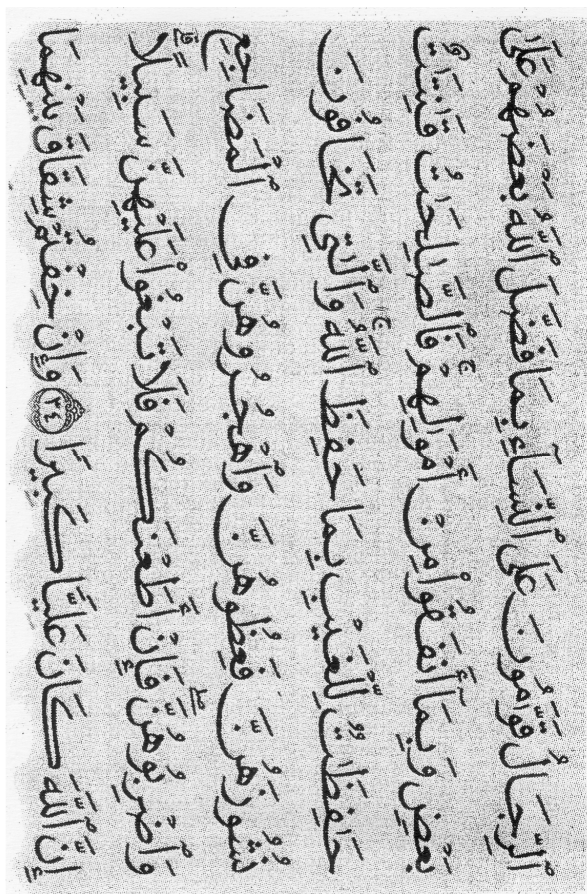 ٱلرِّجَالُ قَوَّٰمُونَ عَلَى ٱلنِّسَآءِ بِمَا فَضَّلَ ٱللَّهُ بَعْضَهُمْ عَلَىٰ
بَعْضٍ وَبِمَآ أَنفَقُوا۟ مِنْ أَمْوَٰلِهِمْ ۚ فَٱلصَّٰلِحَٰتُ قَٰنِتَٰتٌ
حَٰفِظَٰتٌ لِّلْغَيْبِ بِمَا حَفِظَ ٱللَّهُ ۚ وَٱلَّٰتِى تَخَافُونَ
نُشُوزَهُنَّ فَعِظُوهُنَّ وَٱهْجُرُوهُنَّ فِى ٱلْمَضَاجِعِ
وَٱضْرِبُوهُنَّ ۖ فَإِنْ أَطَعْنَكُمْ فَلَا تَبْغُوا۟ عَلَيْهِنَّ سَبِيلًا ۗ
إِنَّ ٱللَّهَ كَانَ عَلِيًّا كَبِيرًا ٣٤ وَإِنْ خِفْتُمْ شِقَاقَ بَيْنِهِمَا